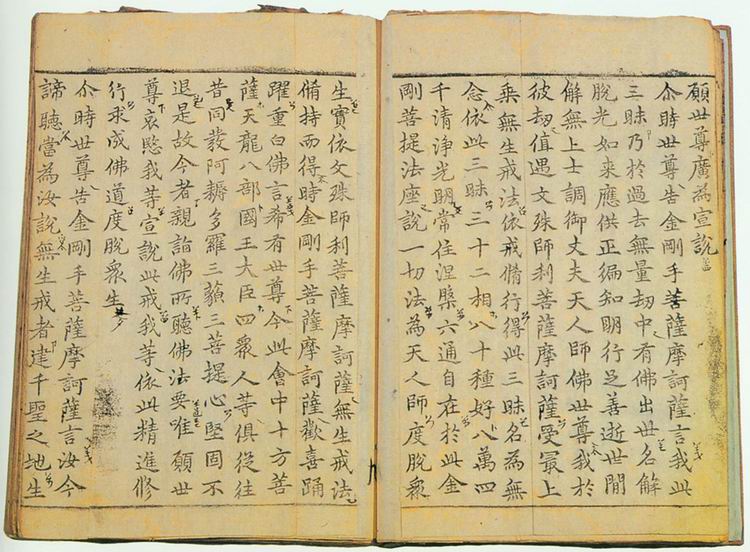 願世尊廣為宣說
尒時世尊告金剛手菩薩摩訶薩言我此
三昧乃於過去無量劫中有佛出世名解
脫光如來應供正徧知明行足善逝世間
解無上士調御丈夫天人師佛世尊我於
彼劫值遇文殊師利菩薩摩訶薩受冣上
乘無生戒法依戒脩行得此三昧名為無
念依此三昧三十二相八十種好八萬四
千清淨光明常住涅槃六通自在於此金
剛菩提法座說一切法為天人師度脫衆
生實依文殊師利菩薩摩訶薩無生戒法
脩持而得時金剛手菩薩摩訶薩歡喜踊
躍重白佛言希有世尊今此會中十方菩
薩天龍八部國王大臣四衆人等俱從往
昔同發阿耨多羅三藐三菩提心堅固不
退是故今者親詣佛所聽佛法要唯願世
尊哀愍我等宣說此戒我等依此精進修
行求成佛道度脫衆生
尒時世尊告金剛手菩薩摩訶薩言汝今
諦聽當為汝說無生戒者達千聖之地生